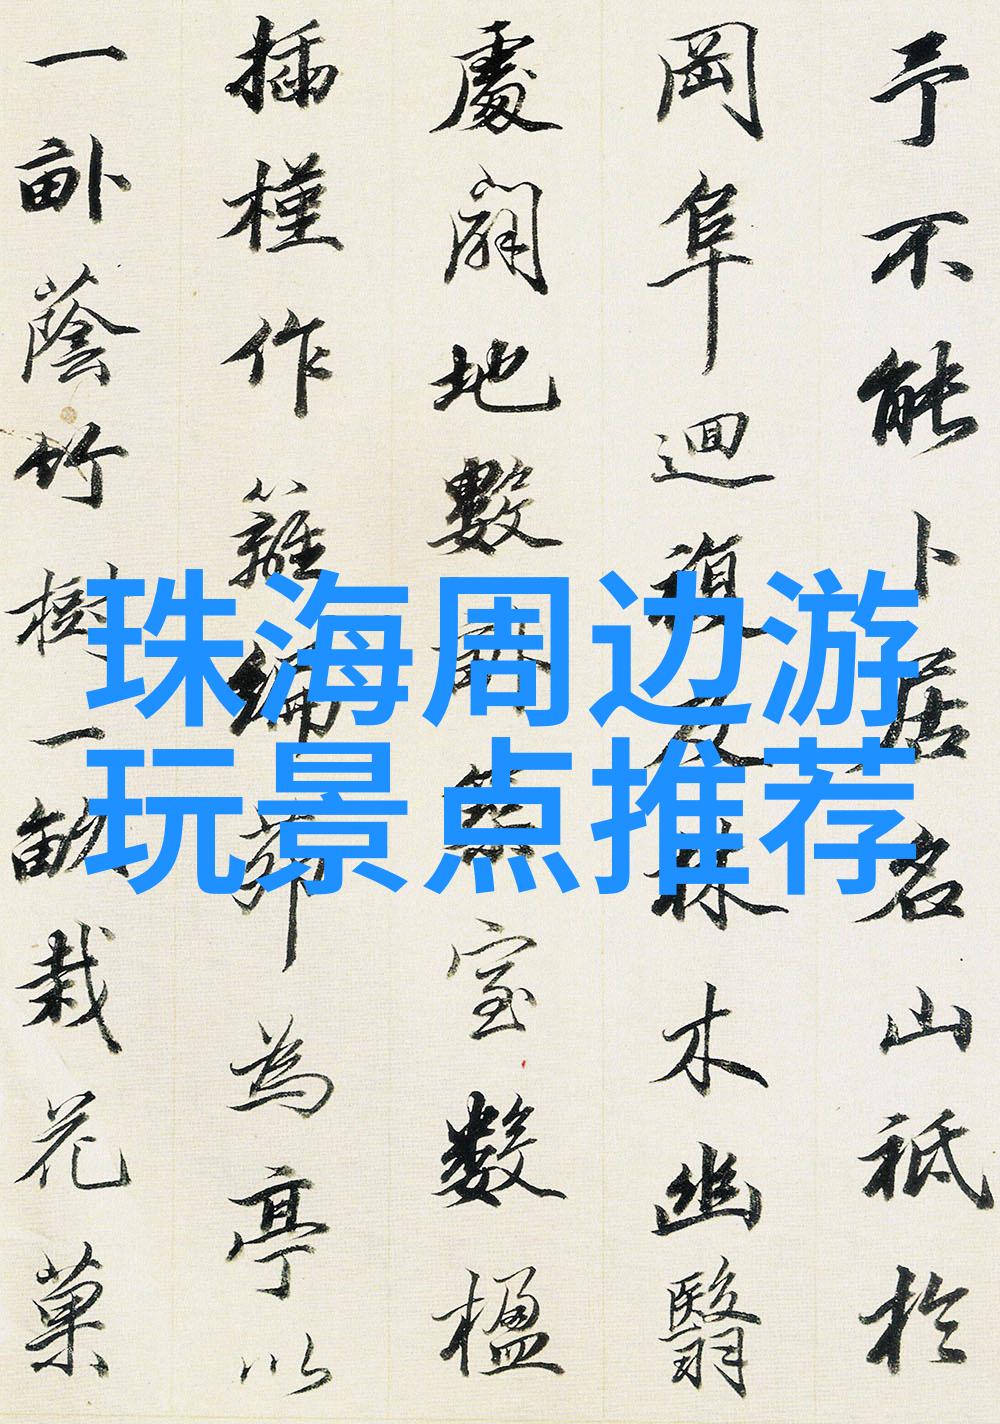 予不能卜居名山祗於
岡阜迴複及林木幽翳
處闢地數畝築室數楹
插槿作籬編茆為亭以
一畝蔭竹樹一畝栽花菓
珠海周边游
玩景点推荐